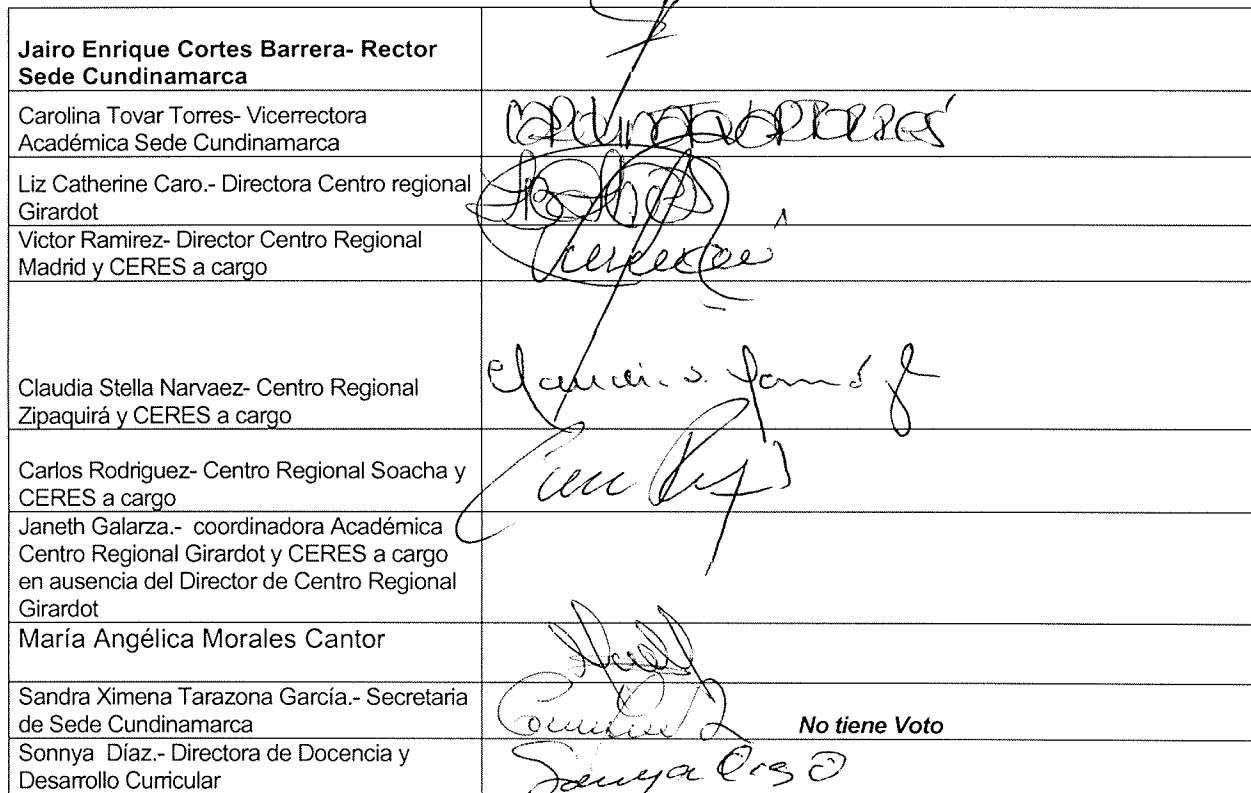 Jairo Enrique Cortes Barrera- Rector
Sede Cundinamarca
Carolina Tovar Torres- Vicerrectora
Académica Sede Cundinamarca
CAROLINA TOVAR TORRES
Liz Catherine Caro.- Directora Centro regional
Girardot
Victor Ramirez- Director Centro Regional
Madrid y CERES a cargo
Claudia Stella Narvaez- Centro Regional
Zipaquirá y CERES a cargo
Carlos Rodriguez- Centro Regional Soacha y
CERES a cargo
Janeth Galarza.- coordinadora Académica
Centro Regional Girardot y CERES a cargo
en ausencia del Director de Centro Regional
Girardot
María Angélica Morales Cantor
Sandra Ximena Tarazona García.- Secretaria
de Sede Cundinamarca
No tiene Voto
Sonnya Díaz.- Directora de Docencia y
Desarrollo Curricular